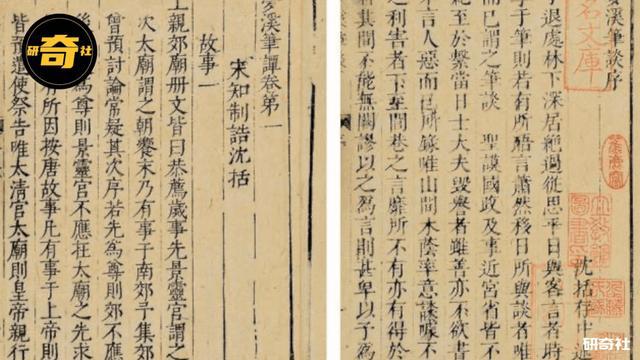 研奇社
溪筆談序
沈括存中述
退處林下深居絕過從思平日與客言者時
事于筆則若有所晤言蕭然移日所與談者唯
而已謂之筆談 聖謨國政及事近宮省皆不
至於繫當日士大夫毀譽者雖善亦不欲書
不言人惡而已所錄唯山間木蔭率意談噱不
之利害者下至閭巷之言靡所不有亦有得於
者其間不能無闕謬以之為言則甚卑以予為
名文庫
溪筆譚卷第一
宋知制誥沈括
故事一
上親郊廟冊文皆曰恭薦歲事先景靈宮謂之
次太廟謂之朝饗末乃有事于南郊予集郊
曾預討論常疑其次序若先為尊則郊不應
後為尊則景靈宮不應在太廟之先求
有所因按唐故事凡有事于上帝則
皆預遣使祭告唯太清宮太廟則皇帝親行
研奇社